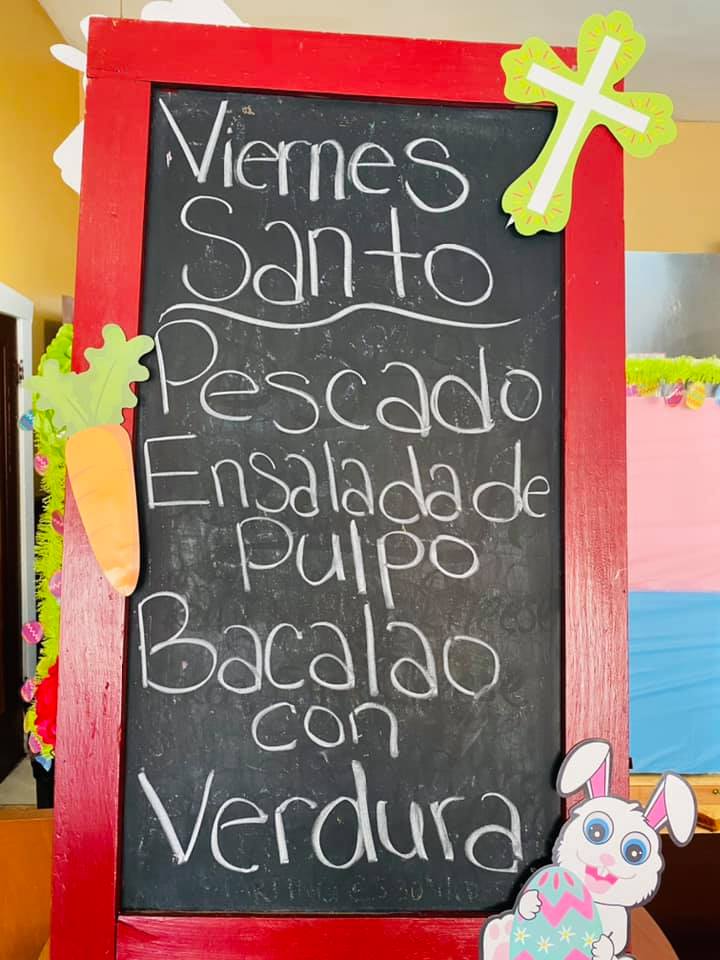 Viernes
Santo
Pescado
Ensalada de
pulpo
Bacalao
con
Verdura